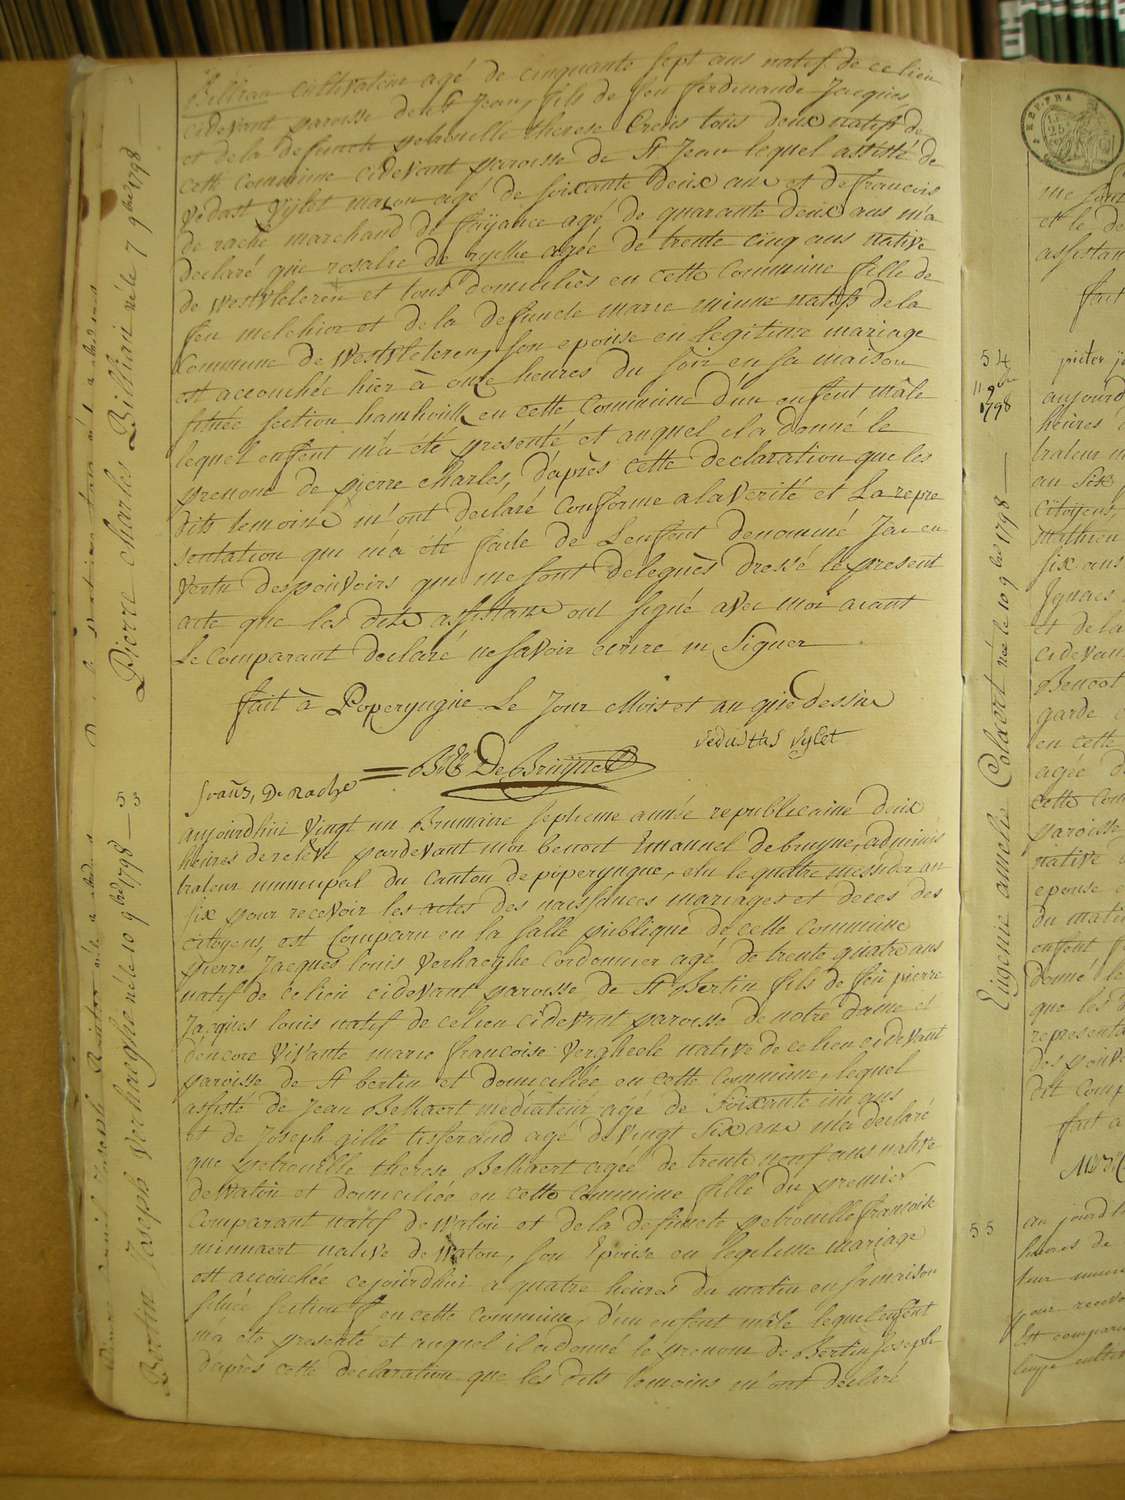 Billiau cultivateur agé de cinquante sept ans natif de ce lieu
cidevant paroisse de St Jean, fils de feu ferdinande Jacques
et de la defuncte petronille therese Creus tous deux natifs de
cette commune cidevant paroisse de St Jean lequel assisté de
vedast vylet maçon agé de soixante deux ans et de francois
de rache marchand de faÿance agé de quarante deux ans m'a
declaré que rosalie de rycke agée de trente cinq ans native
de westvleteren et tous domiciliés en cette commune fille de
feu melchior et de la defuncte marie minne natifs de la
Commune de westvleteren, son epouse en legitime mariage
est accouchée hier à onze heures du soir en sa maison
située section hamhoick en cette commune d'un enfent mâle
lequel enfent m'a eté presenté et auquel il a donné le
prenom de pierre charles, d'après cette declaration que les
dits temoins m'ont declaré conforme a la verité et la repre
sentation qui m'a été faite de l'enfent denommé J'ai en
vertu des pouvoirs qui me sont delegués dressé le present
acte que les dits assistans ont signé avec moi aiant
Le Comparant declaré ne savoir ecrire ni signer
fait à Poperyngue Le Jour Mois et an que dessus
vedustus vylet
Frañs, De Rache
B: E: DeBruyne
aujourdhui vingt un Brumaire septieme année republicaine deux
heires de relevé pardevant moi benoit Emanuel debruyne, adminis
trateur municipal du Canton de poperyngue, elu le quattre messidor an
six pour recevoir les actes des naissances mariages et deces des
citoyens, est Comparu en la salle publique de cette commune
pierre Jacques louis verhaeghe Cordonnier agé de trente quatre ans
natif de ce lieu cidevant paroisse de St Bertin fils de feu pierre
Jacques louis natif de ce lieu cidevant paroisse de notre dame et
d'encore vivante marie francoise verghiele native de ce lieu cidevant
paroisse de St bertin et domiciliée en cette commune, lequel
assisté de Jean Bekaert mediateur agé de soixante un ans
et de Joseph gille tisserand agé de vingt six ans m'a declaré
que petronille therese Bekaert agée de trente neuf ans native
de waton et domiciliée en cette commune fille du premier
Comparant natif de waton et de la defuncte petronille francoise
minnaert native de waton, son Epouse en legitime mariage
est accouchée cejourdhui a quatre heires du matin en sa maison
située section en cette commune, d'un enfent mâle lequel enfent
ma eté presenté et auquel il a donné le prenom de Bertin Joseph
d'après cette declaration que les dits temoins m'ont declaré
Pierre charles Billiau né le 7 9bre 1798
53
Bertin Joseph verhaeghe né le 10 9bre 1798
REP. FRA
me sont
et le de
assistan
fait
54
11 9bre
1798
Eugenie amelie Colaert née le 10 9bre 1798
pieter j
aujourd
heires
trateur m
an six
citoyens,
Mathieu
six ans
Ignace
et de la
cidevan
Benoot
garde
en cette
agée d
cette com
paroisse
native
epouse
du mati
enfent
donné le
que les d
represent
des pouve
dit comp
fait a
55
aujourd
heires de
teur muni
pour recevo
Est compar